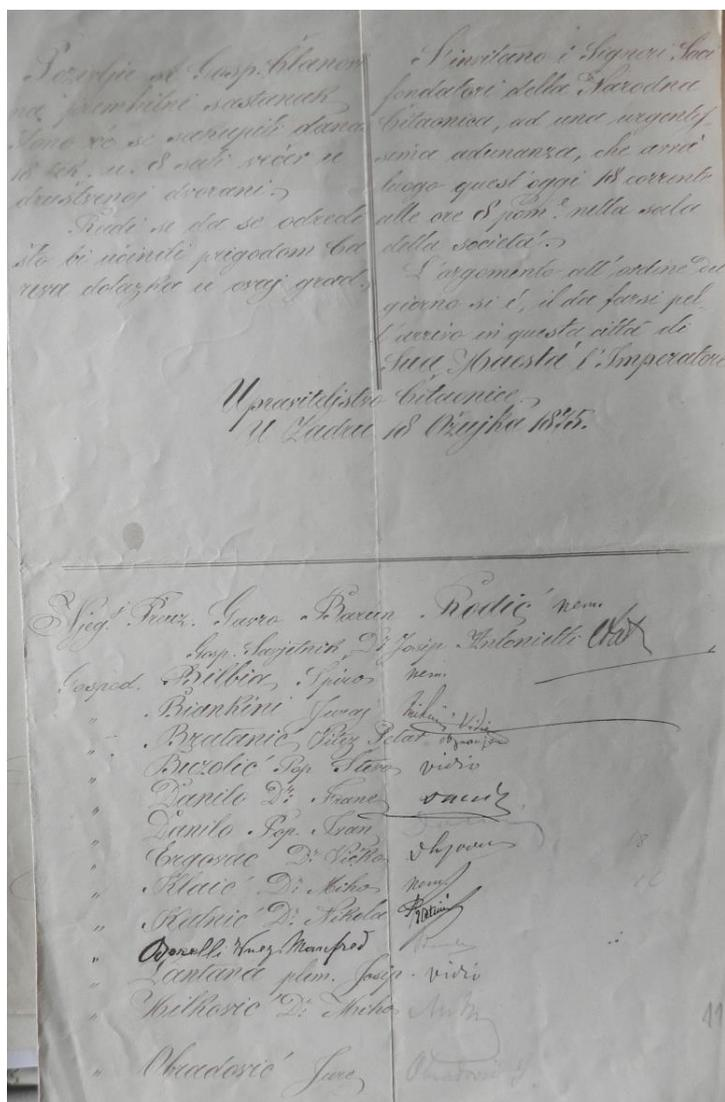 Pozivlju se Gosp. Članovi
na prešnitni sastanak
što no će se sakupiti danas
18 tek. u 8 sati večer u
društvenoj dvorani.
Radi se da se odredi
što bi učiniti prigodom Ca
reva dolazka u ovaj grad.
S'invitano i Signori Soci
fondatori della Narodna
Čitaonica, ad una urgentis-
sima adunanza, che avrà
luogo quest'oggi 18 corrente
alle ore 8 pom.e nella sala
della società.
L'argomento all'ordine del
giorno si è, il da farsi pel-
l'arrivo in questa città di
Sua Maestà l'Imperatore
Upraviteljstvo Čitaonice.
U Zadru 18 Ožujka 1875.
Njeg. Preuz. Gavro Barun Rodić nem.
Gosp. Savjetnik Dr. Josip Antonietti
Gospod. Bilbia Spiro nem.
" Biankini Juraj
" Bratanić Vitez Petar
" Buzolić Pop Stevo vidio
" Danilo Dr. Frane
" Danilo Pop. Ivan
" Ergovac Dr. Vicko
" Klaić Dr. Miho nem.
" Katnić Dr. Nikola
" Borelli Knez Manfred
" Lantana plem. Josip. vidio
" Milković Dr. Miho
" Obradović Jure Obradović J